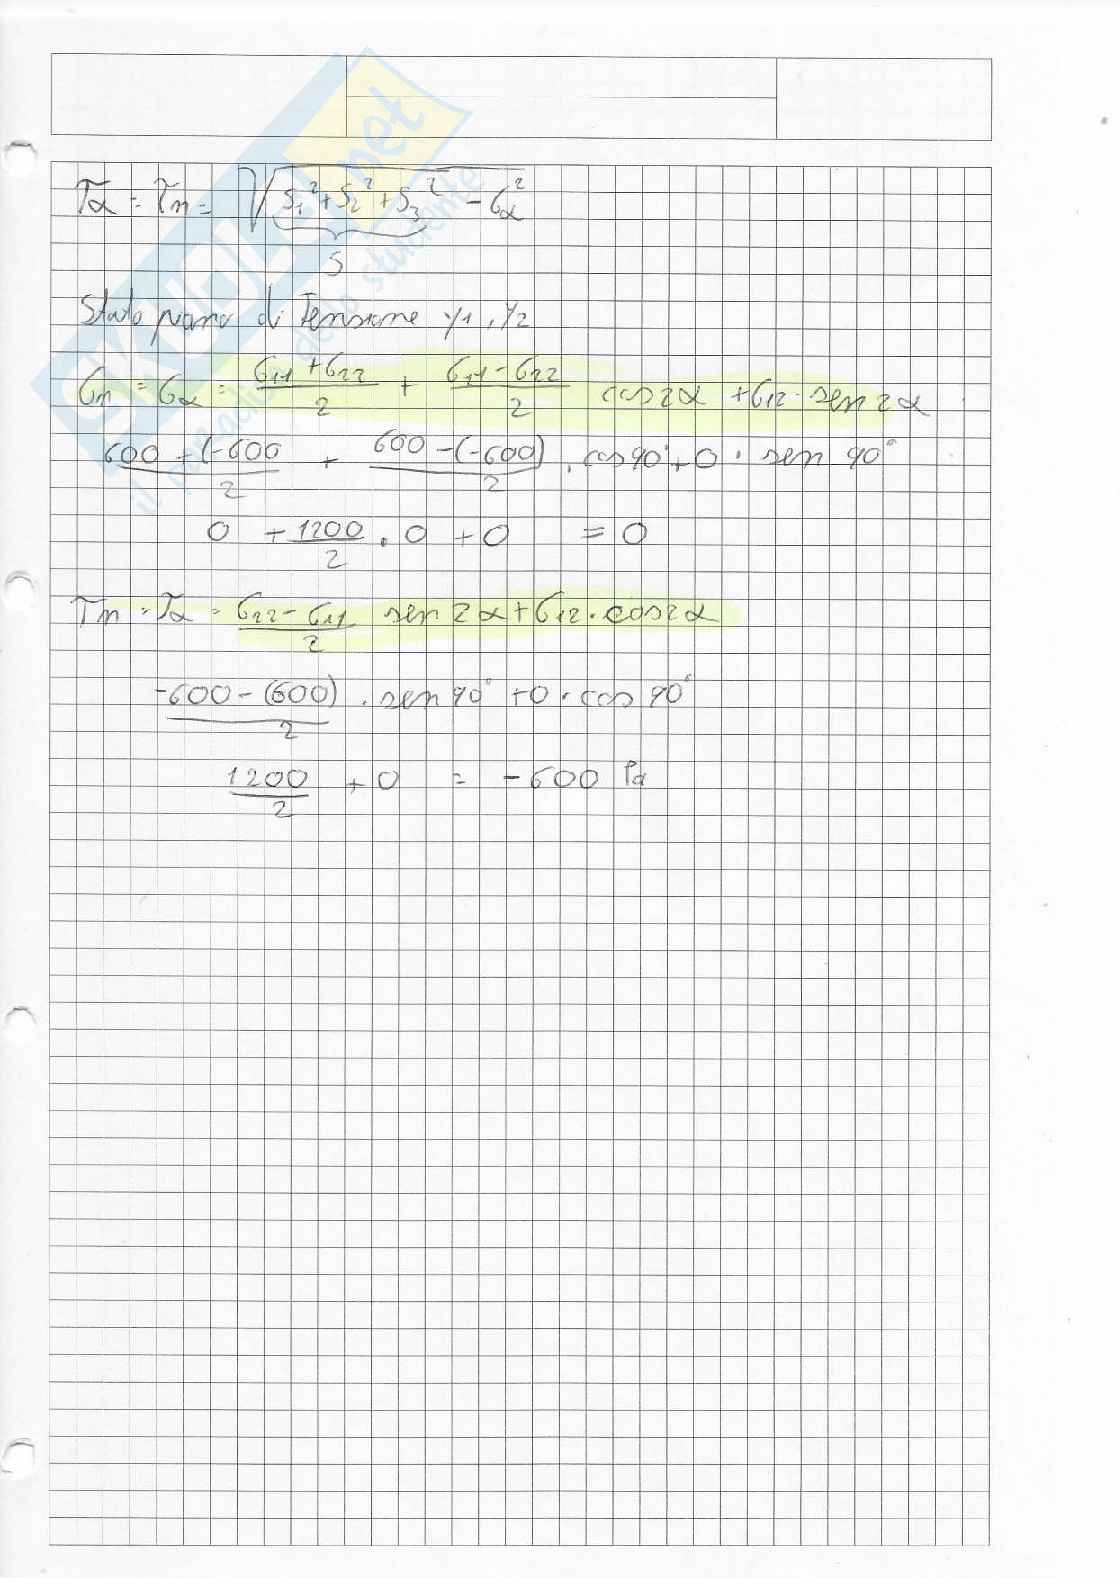 τα = τn = √(S₁² + S₂² + S₃² − σα²)
S
Stato piano di Tensione y1, y2
σn = σα = (σ11 + σ22)/2 + (σ11 − σ22)/2 cos2α + σ12 · sen2α
(600 + (−600)/2 + (600 − (−600))/2 · cos90° + 0 · sen 90°
0 + 1200/2 · 0 + 0 = 0
τn = τα = (σ22 − σ11)/2 sen 2α + σ12 · cos2α
(−600 − (600))/2 · sen90° + 0 · cos 90°
1200/2 + 0 = −600 Pa
SKUOLA.net
il paradiso dello studente